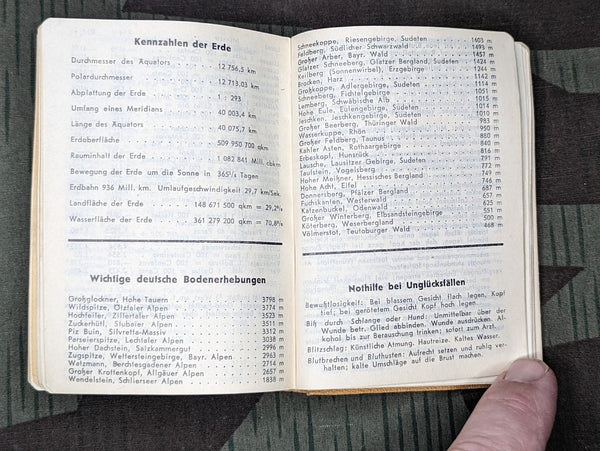 Kennzahlen der Erde
Durchmesser des Äquators . . . . 12 756,5 km
Polardurchmesser . . . . 12 713,03 km
Abplattung der Erde . . . . 1 : 293
Umfang eines Meridians . . . . 40 003,4 km
Länge des Äquators . . . . 40 075,7 km
Erdoberfläche . . . . 509 950 700 qkm
Rauminhalt der Erde . . . . 1 082 841 Mill. cbkm
Bewegung der Erde um die Sonne in 365¼ Tagen
Erdbahn 936 Mill. km. Umlaufgeschwindigkeit 29,7 km/Sek.
Landfläche der Erde . . 148 671 500 qkm = 29,2%
Wasserfläche der Erde . . 361 279 200 qkm = 70,8%
Wichtige deutsche Bodenerhebungen
Großglockner, Hohe Tauern . . . . 3798 m
Wildspitze, Ötztaler Alpen . . . . 3774 m
Hochfeiler, Zillertaler Alpen . . . . 3523 m
Zuckerhütl, Stubaier Alpen . . . . 3511 m
Piz Buin, Silvretta-Massiv . . . . 3312 m
Parseierspitze, Lechtaler Alpen . . . . 3038 m
Hoher Dachstein, Salzkammergut . . . . 2996 m
Zugspitze, Wettersteingebirge, Bayr. Alpen . . 2963 m
Watzmann, Berchtesgadener Alpen . . . . 2714 m
Großer Krottenkopf, Allgäuer Alpen . . . . 2657 m
Wendelstein, Schlierseer Alpen . . . . 1838 m
Schneekoppe, Riesengebirge, Sudeten . . . . 1603 m
Feldberg, Südlicher Schwarzwald . . . . 1493 m
Großer Arber, Bayr. Wald . . . . 1457 m
Glatzer Schneeberg, Glatzer Bergland, Sudeten . . 1424 m
Keilberg (Sonnenwirbel), Erzgebirge . . . . 1244 m
Brocken, Harz . . . . 1142 m
Großkoppe, Adlergebirge, Sudeten . . . . 1114 m
Schneeberg, Fichtelgebirge . . . . 1051 m
Lemberg, Schwäbische Alb . . . . 1015 m
Hohe Eule, Eulengebirge, Sudeten . . . . 1014 m
Jeschken, Jeschkengebirge, Sudeten . . . . 1010 m
Großer Beerberg, Thüringer Wald . . . . 983 m
Wasserkuppe, Rhön . . . . 950 m
Großer Feldberg, Taunus . . . . 880 m
Kahler Asten, Rothaargebirge . . . . 840 m
Erbeskopf, Hunsrück . . . . 816 m
Lausche, Lausitzer Gebirge, Sudeten . . . . 791 m
Taufstein, Vogelsberg . . . . 772 m
Hoher Meißner, Hessisches Bergland . . . . 749 m
Hohe Acht, Eifel . . . . 746 m
Donnersberg, Pfälzer Bergland . . . . 687 m
Fuchskanten, Westerwald . . . . 657 m
Katzenbuckel, Odenwald . . . . 625 m
Großer Winterberg, Elbsandsteingebirge . . . . 551 m
Köterberg, Weserbergland . . . . 500 m
Völmerstot, Teutoburger Wald . . . . 468 m
Nothilfe bei Unglücksfällen
Bewußtlosigkeit: Bei blassem Gesicht flach legen, Kopf
tief; bei gerötetem Gesicht Kopf hoch legen.
Biß durch Schlange oder Hund: Unmittelbar über der
Wunde betr. Glied abbinden. Wunde ausdrücken. Al-
kohol bis zur Berauschung trinken; sofort zum Arzt.
Blitzschlag: Künstliche Atmung. Hautreize. Kaltes Wasser.
Blutbrechen und Bluthusten: Aufrecht setzen und ruhig ver-
halten; kalte Umschläge auf die Brust machen.